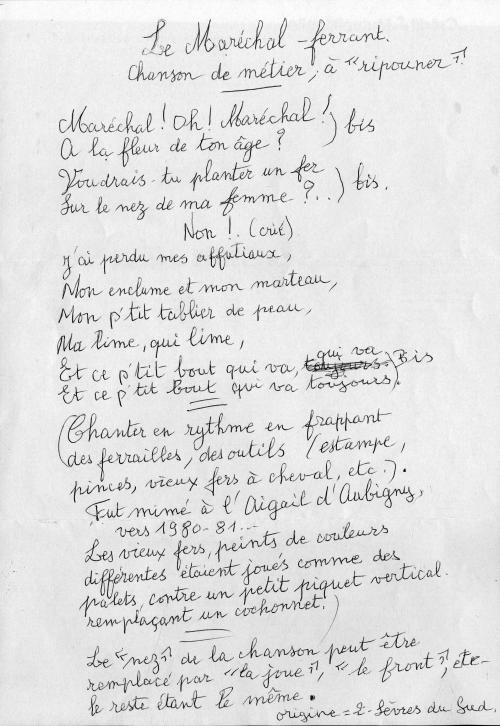 Le Maréchal-ferrant.
Chanson de métier, à "ripouner".
Maréchal ! Oh ! Maréchal !
A la fleur de ton âge ? ) bis
Voudrais-tu planter un fer
Sur le nez de ma femme ?.. ) bis.
Non !. (crié)
J'ai perdu mes affutiaux,
Mon enclume et mon marteau,
Mon p'tit tablier de peau,
Ma lime, qui lime,
Et ce p'tit bout qui va, toujours. qui va
Et ce p'tit bout qui va toujours. ) Bis
(Chanter en rythme en frappant
des ferrailles, des outils (estampe,
pinces, vieux fers à cheval, etc.).
Fut mimé à l'Aigail d'Aubigny,
vers 1980-81...
Les vieux fers, peints de couleurs
différentes étaient joués comme des
palets, contre un petit piquet vertical.
remplaçant un cochonnet.)
Le "nez" de la chanson peut être
remplacé par "la joue", "le front", etc-
le reste étant le même.
origine = 2-Sèvres du Sud.